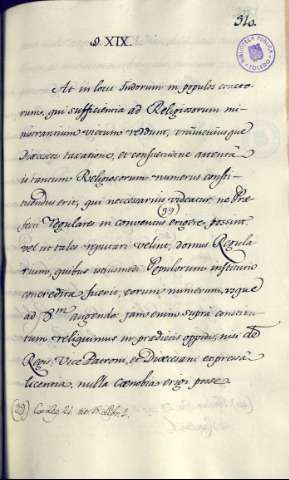 310.
§ XIX.
BIBLIOTECA PUBLICA
TOLEDO
At in locis Indorum in populos concre
rum, qui sufficientia ad Religiosorum mi
nistrantium victum reddunt, uniuscuiusque
Diœcesis taxatione, et consuetudine attenta
is tantum Religiosorum numerus consti
tuendus erit, qui necessarius videatur, ne Præ
(99)
fecti regulares in conventus erigere possint,
vel ut tales reputari velint, domus Regula
rium, quibus utiusmodi Populorum institutio
concredita fuerit, eorum numerum, usque
ad 8.m augendo: jam enim supra conscrip
tum reliquimus in prædictis oppidis, nisi de
Regis, Vice Patroni, et Diœcesani expressa
licentia, nulla cœnobia erigi posse.
(99)